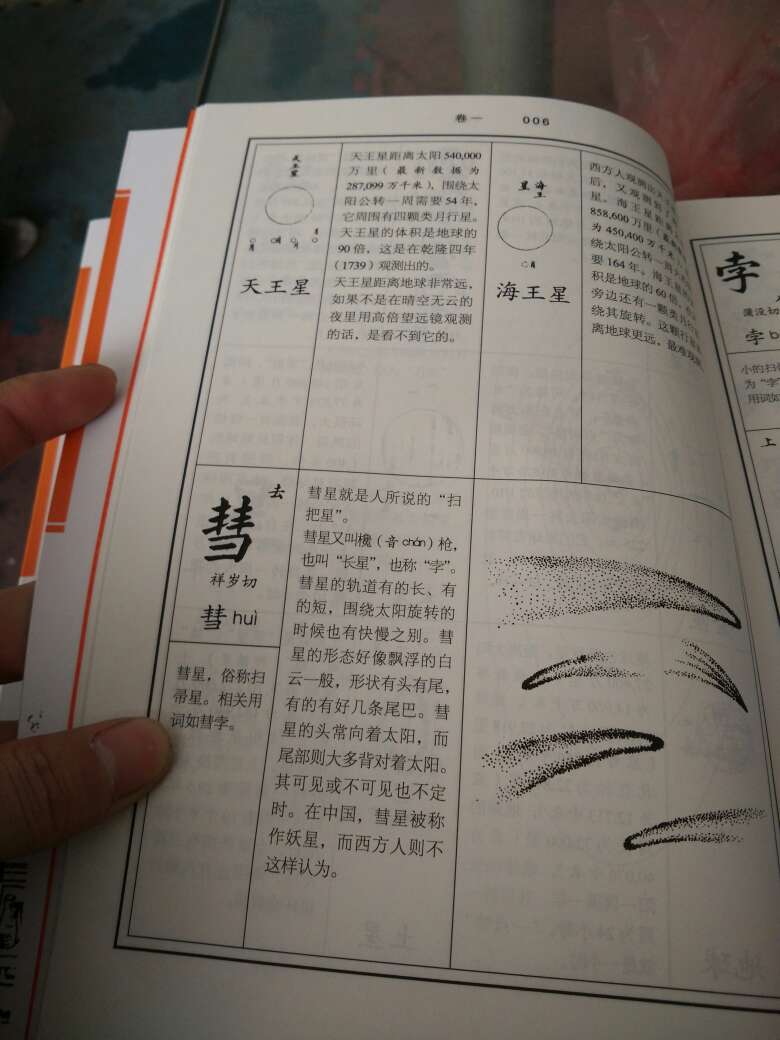 卷一 006
天王星
天王星
天王星距离太阳540,000
万里（最新数据为
287,099万千米），围绕太
阳公转一周需要54年，
它周围有四颗类月行星。
天王星的体积是地球的
90倍，这是在乾隆四年
（1739）观测出的。
天王星距离地球非常远，
如果不是在晴空无云的
夜里用高倍望远镜观测
的话，是看不到它的。
海王星
月
海王星
西方人观测出天
后，又观测到了
星。海王星距离太
858,600万里（最新
为450,400万千米
绕太阳公转一周大
要164年。海王星
积是地球的60倍，
旁边还有一颗类月行
绕其旋转。这颗行星
离地球更远，最难观
去
彗
祥岁切
彗huì
彗星，俗称扫
帚星。相关用
词如彗孛。
彗星就是人所说的“扫
把星”。
彗星又叫欃（音chán）枪，
也叫“长星”，也称“孛”。
彗星的轨道有的长、有
的短，围绕太阳旋转的
时候也有快慢之别。彗
星的形态好像飘浮的白
云一般，形状有头有尾，
有的有好几条尾巴。彗
星的头常向着太阳，而
尾部则大多背对着太阳。
其可见或不可见也不定
时。在中国，彗星被称
作妖星，而西方人则不
这样认为。
孛
蒲没切
孛b
小的扫
为“孛
用词如
上